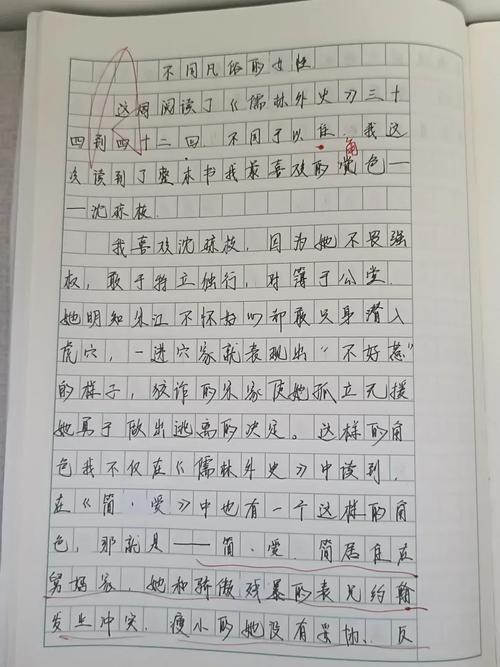 不同凡俗的女性
这周阅读了《儒林外史》三十
四到四十二回.不同于以往.我这
次读到了整本书我最喜欢的觉色—
角
—沈琼枝.
我喜欢沈琼枝,因为她不畏强
权,敢于特立独行,对簿于公堂.
她明知宋江不怀好心却敢只身潜入
虎穴,一进宋家就表现出“不好惹”
的样子,狡诈的宋家使她孤立无援
她勇于做出逃离的决定。这样的角
色我不仅在《儒林外史》中读到.
在《简·爱》中也有一个这样的角
色,那就是——简·爱.简居住在
舅妈家.她和骄傲残暴的表兄约翰
发生冲突.瘦小的她没有妥协、反